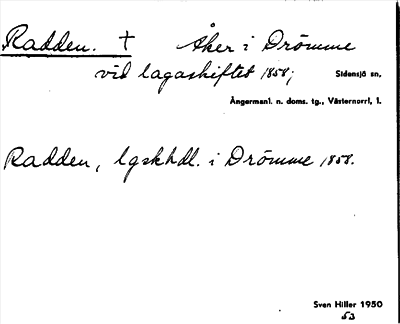 Radden. † Åker i Drömme
vid lagaskiftet 1858;
Sidensjö sn,
Ångermanl. n. doms. tg., Västernorrl, l.
Radden, lgskhdl. i Drömme 1858.
Sven Hiller 1950
53